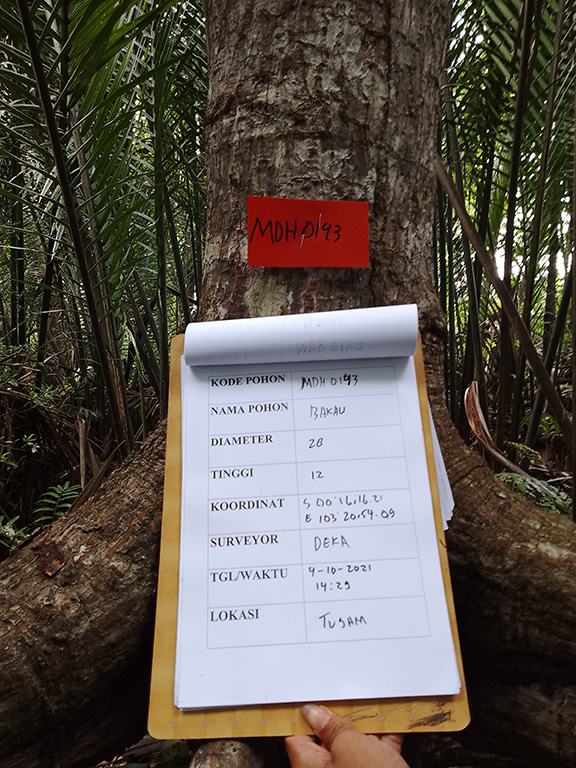 MDH 0193
KODE POHON MDH 0193
NAMA POHON BAKAU
DIAMETER 28
TINGGI 12
KOORDINAT S 00°16,16.21
E 103°20,54.09
SURVEYOR DEKA
TGL/WAKTU 4-10-2021
14:29
LOKASI TUJAM